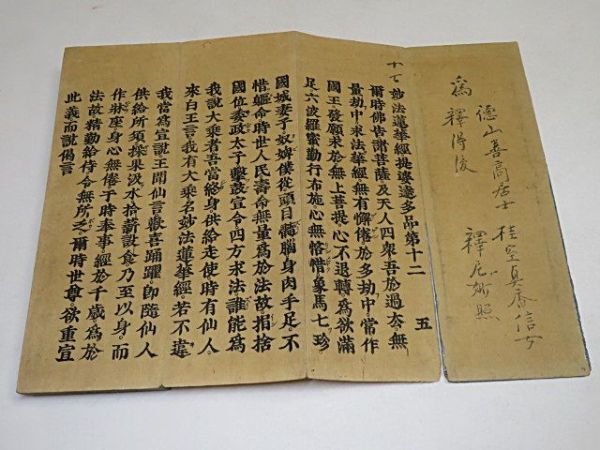 為 釋得
德山善高居士
桂空真香信女
釋尼妙照
妙法蓮華經提婆達多品第十二
五
爾時佛告諸菩薩及天人四衆吾於過去無
量劫中求法華經無有懈倦於多劫中常作
國王發願求於無上菩提心不退轉爲欲滿
足六波羅蜜勤行布施心無悋惜象馬七珍
國城妻子奴婢僕從頭目髓腦身肉手足不
惜軀命時世人民壽命無量爲於法故捐捨
國位委政太子擊鼓宣令四方求法誰能爲
我說大乘者吾當終身供給走使時有仙人
來白王言我有大乘名妙法蓮華經若不違
我當爲宣說王聞仙言歡喜踊躍卽隨仙人
供給所須採果汲水拾薪設食乃至以身而
作牀座身心無倦于時奉事經於千歲爲於
法故精勤給侍令無所乏爾時世尊欲重宣
此義而說偈言